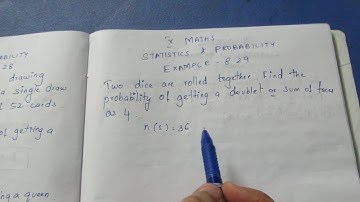 ABILITY
8.28
drawing
a single draw
f 52 cards
of getting a
ng a queen
X MATHS
STATISTICS & PROBABILITY
EXAMPLE - 8.29
Two dice are rolled together. Find the
probability of getting a doublet or sum of faces
as 4.
n(s) = 36